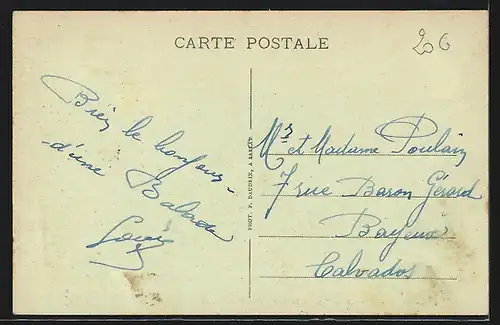 CARTE POSTALE
206
Bien le bonjour
d'une Balade
Louis
PHOT. P. BAUDRIN, A
Mr et Madame Poulain
7 rue Baron Gérard
Bayeux
Calvados